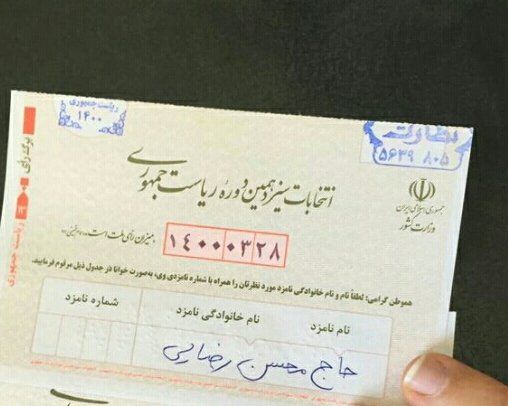 ریاست جمهوری
۱۴۰۰
نظارت
۵۶۳۹ ۸۰۵
برگ رأی
۱۳
ریاست جمهوری
انتخابات سیزدهمین دوره ریاست جمهوری
جمهوری اسلامی ایران
وزارت کشور
میزان رأی ملت است.
۱۴۰۰۰۳۲۸
هموطن گرامی؛ لطفاً نام و نام خانوادگی نامزد مورد نظرتان را همراه با شماره نامزدی وی، به‌صورت خوانا در جدول ذیل مرقوم فرمایید.
نام نامزد
نام خانوادگی نامزد
شماره نامزد
حاج محسن رضایی